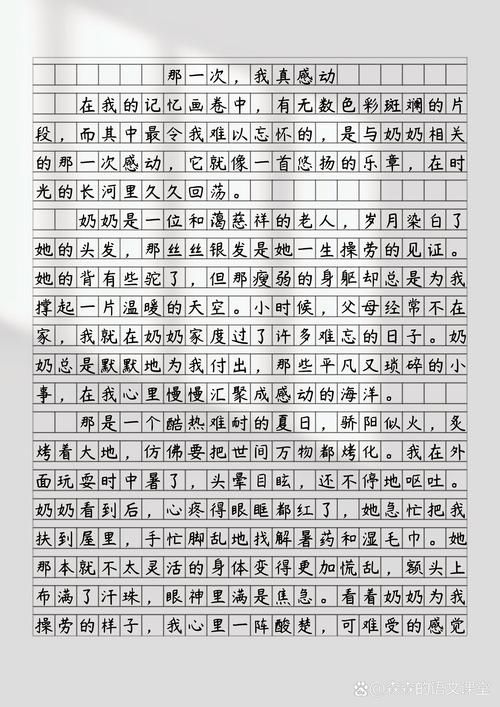 那一次，我真感动
在我的记忆画卷中，有无数色彩斑斓的片
段，而其中最令我难以忘怀的，是与奶奶相关
的那一次感动，它就像一首悠扬的乐章，在时
光的长河里久久回荡。
奶奶是一位和蔼慈祥的老人，岁月染白了
她的头发，那丝丝银发是她一生操劳的见证。
她的背有些驼了，但那瘦弱的身躯却总是为我
撑起一片温暖的天空。小时候，父母经常不在
家，我就在奶奶家度过了许多难忘的日子。奶
奶总是默默地为我付出，那些平凡又琐碎的小
事，在我心里慢慢汇聚成感动的海洋。
那是一个酷热难耐的夏日，骄阳似火，炙
烤着大地，仿佛要把世间万物都烤化。我在外
面玩耍时中暑了，头晕目眩，还不停地呕吐。
奶奶看到后，心疼得眼眶都红了，她急忙把我
扶到屋里，手忙脚乱地找解暑药和湿毛巾。她
那本就不太灵活的身体变得更加慌乱，额头上
布满了汗珠，眼神里满是焦急。看着奶奶为我
操劳的样子，我心里一阵酸楚，可难受的感觉
@森森的语文课堂